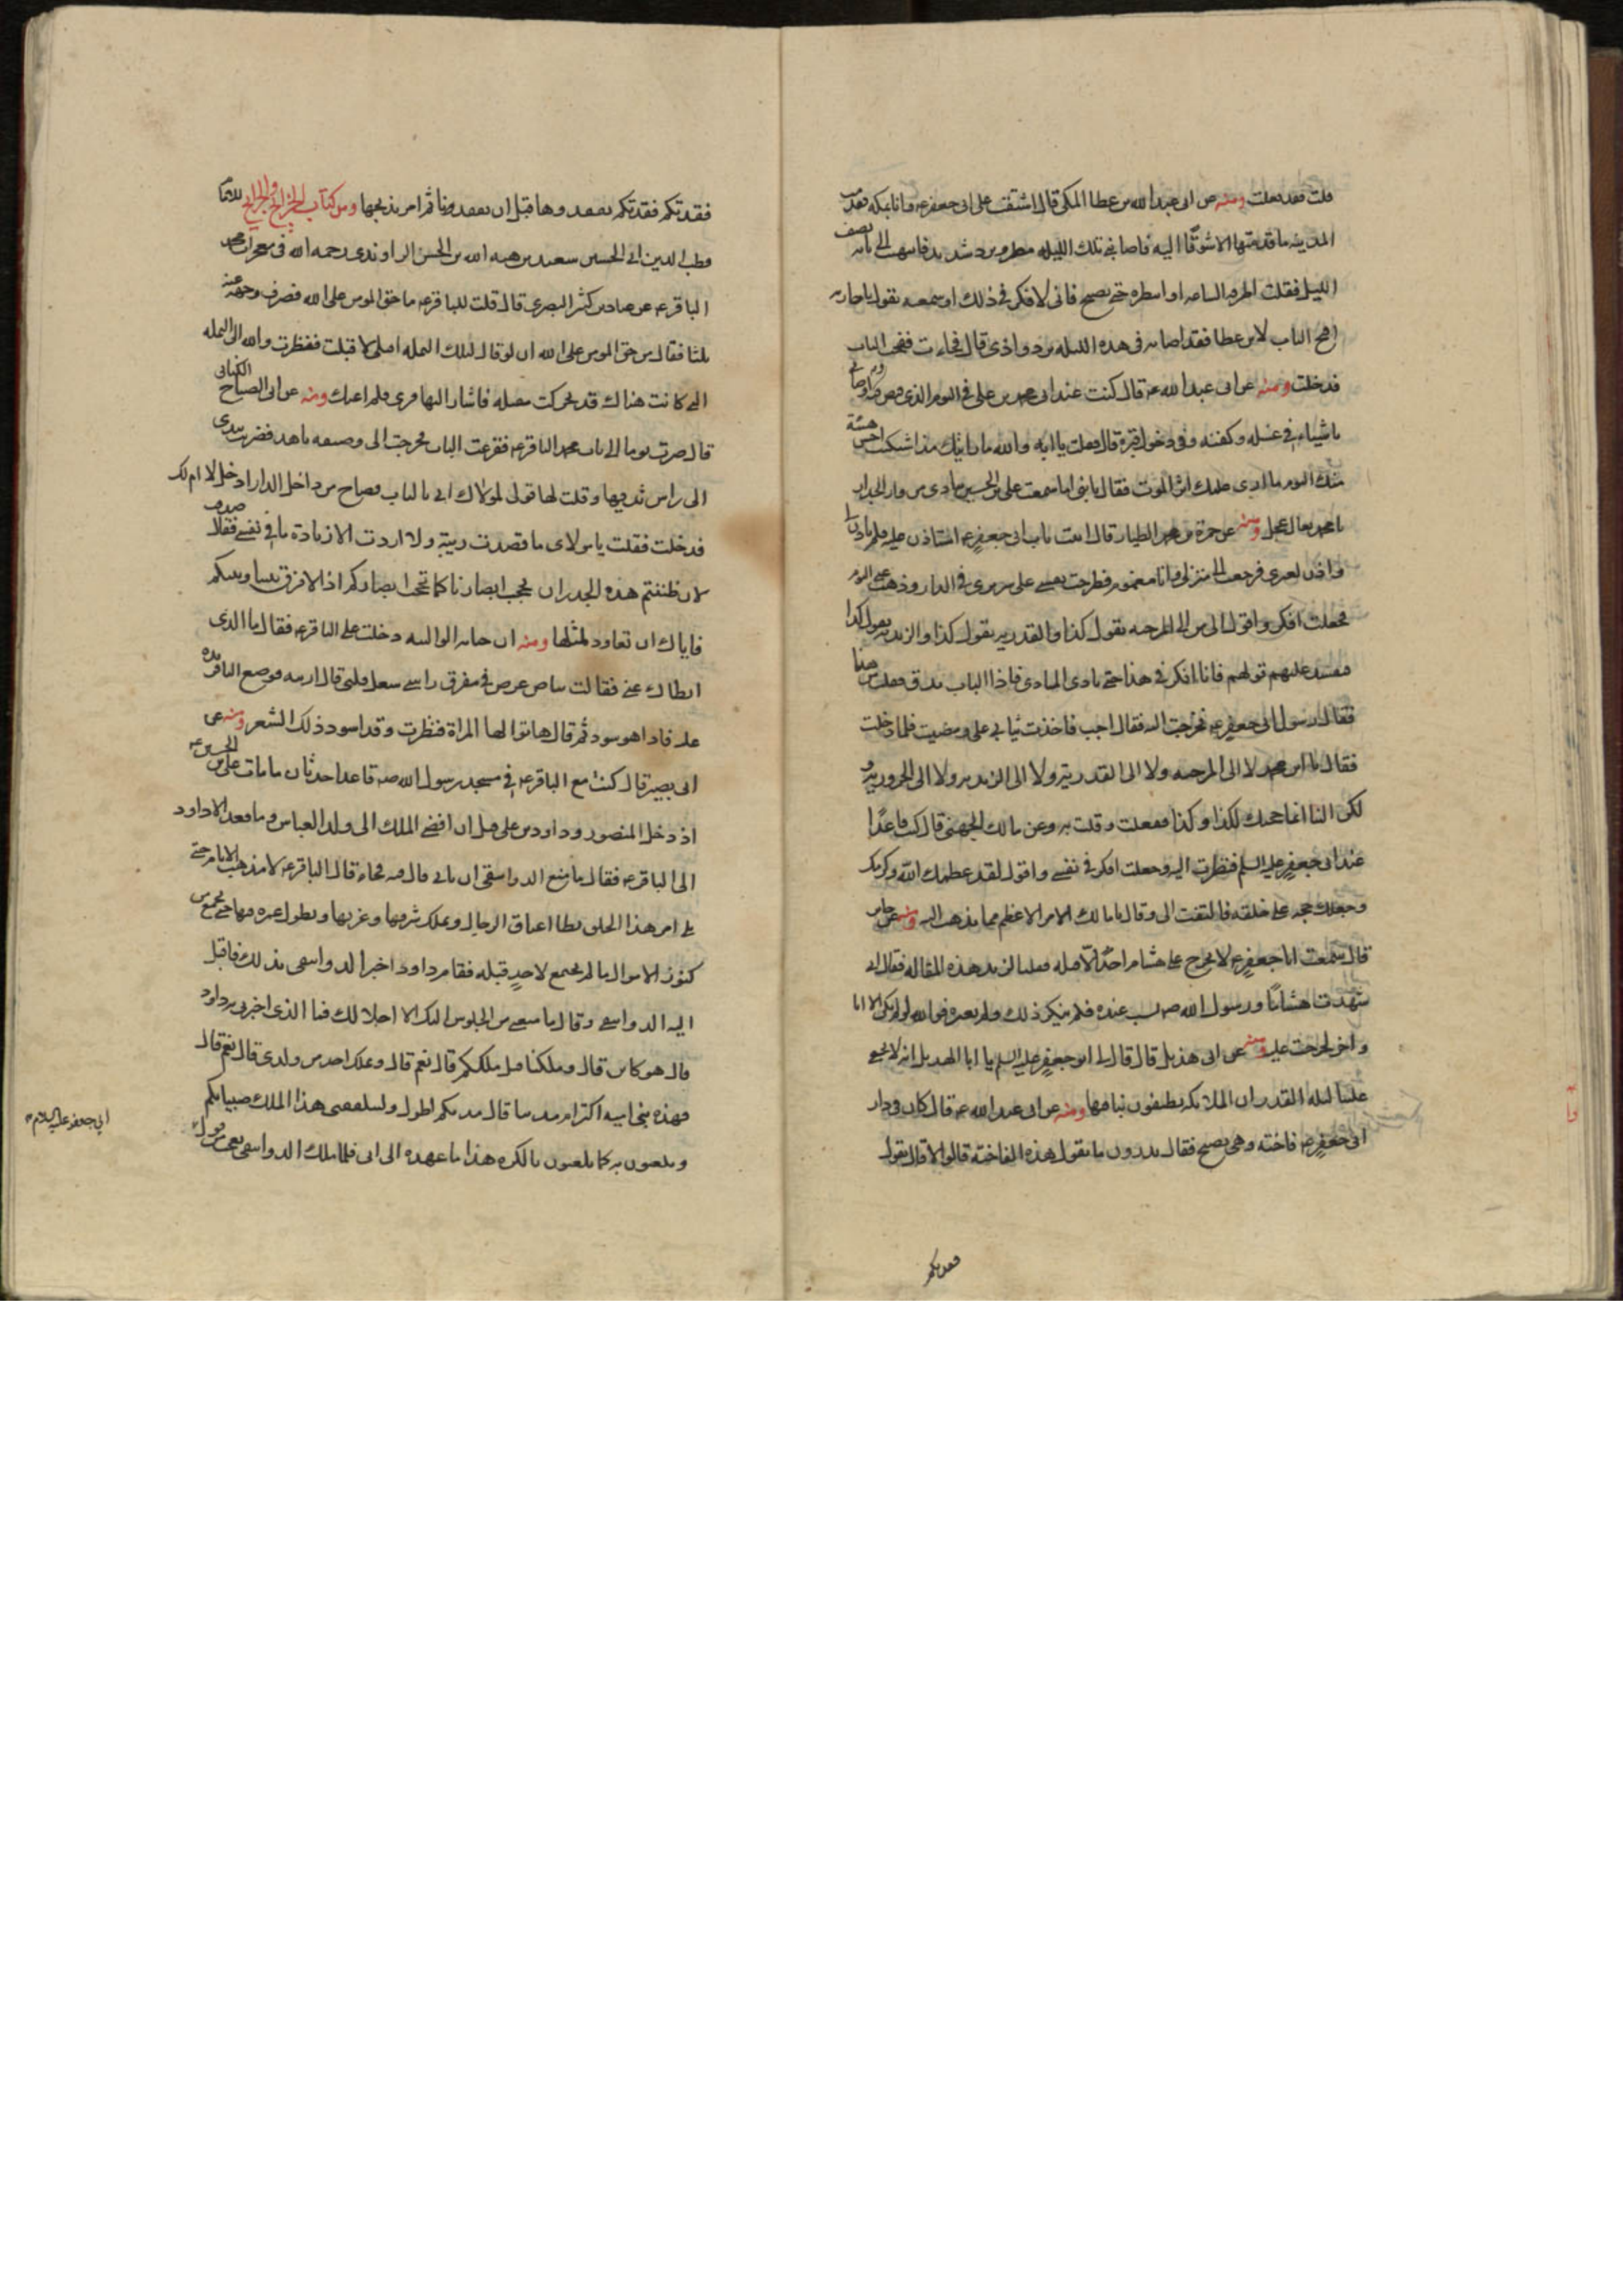 قلت فقد فعلت ومنه عن ابى عبد الله بن عطا المكى قال اشتقت على ابى جعفر عه وانا بمكه فقدمت
المدينه ما قدمتها الا شوقًا اليه فاصابنى تلك الليله مطر وبرد شديد فانتهيت الى بابه نصف
الليل فقلت اطرقه الساعه او انتظره حتى يصبح فانى لافكر فى ذلك اذ سمعته يقول يا جاريه
افتحى الباب لابن عطا فقد اصابه فى هذه الليله برد واذى قال فجاءت ففتحت الباب
فدخلت ومنه عن ابى عبد الله عه قال كنت عند ابى محمد بن على فى اليوم الذى قبض فيه واوصانى
باشياء فى غسله وكفنه وفى دخول قبره قال فقلت يا ابه والله ما رايتك منذ اشتكيت احسن هيئة
منك اليوم ما ارى عليك اثر الموت فقال يا بنى اما سمعت على بن الحسين ينادى من وراء الجدار
يا محمد تعال عجل ومنه عن حمزة بن محمد الطيار قال اتيت باب ابى جعفر عه استاذن عليه فلم ياذن لى
واذن لغيرى فرجعت الى منزلى وانا مغموم فطرحت نفسى على سرير فى الدار وذهب عنى النوم
فجعلت افكر واقول الى من الى المرجئه تقول كذا والقدريه تقول كذا والزيديه تقول كذا
فيفسد عليهم قولهم فانا افكر فى هذا حتى نادى المنادى فاذا الباب يدق فقلت من هذا
فقال رسول ابى جعفر عه فخرجت اليه فقال اجب فاخذت ثيابى على ومضيت فلما دخلت
فقال يا ابن محمد لا الى المرجئه ولا الى القدرية ولا الى الزيديه ولا الى الحروريه و
لكن الينا انما حجبتك لكذا وكذا ففعلت وقلت به وعن مالك الجهنى قال كنت قاعدًا
عند ابى جعفر عليه السلم فنظرت اليه وجعلت افكر فى نفسى واقول لقد عظمك الله وكرمك
وجعلك حجه على خلقه فالتفت الى وقال يا مالك الامر الاعظم مما تذهب اليه ومنه عن جابر
قال سمعت ابا جعفر عه لا يخرج على هشام احد الا قتله فقلنا لزيد هذه المقاله فقال انى
شهدت هشامًا ورسول الله صه يسب عنده فلم ينكر ذلك ولم يغيره فوالله لو لم يكن الا انا
واخر لخرجت عليه ومنه عن ابى هذيل قال قال لى ابو جعفر عليه السلم يا ابا الهذيل انه لا يخفى
علينا ليله القدر ان الملائكه يطيفون بنا فيها ومنه عن ابى عبد الله عه قال كان فى دار
ابى جعفر عه فاخته وهى تصيح فقال تدرون ما تقول هذه الفاخته قالوا لا قال تقول
فقدتكم
فقدتكم فقدتكم نفقدوها قبل ان تفقدونا ثم امر بذبحها ومن كتاب الخرائج والجرائح للامام
قطب الدين ابى الحسين سعيد بن هبه الله بن الحسن الراوندى رحمه الله فى معجزات محمد
الباقر عه عن عباد بن كثير البصرى قال قلت للباقر عه ما حق المومن على الله فصرف وجهه عنه
ثلثا فقال من حق المومن على الله ان لو قال لتلك النخله اقبلى لاقبلت فنظرت والله الى النخله
التى كانت هناك قد تحركت مقبله فاشار اليها قرى فلم اعنك ومنه عن ابى الصباح الكنانى
قال صرت يوما الى باب محمد الباقر عه فقرعت الباب فخرجت الى وصيفه ناهد فضربت بيدى
الى راس ثديها وقلت لها قولى لمولاك انى بالباب فصاح من داخل الدار ادخل لا ام لك
فدخلت فقلت يا مولاى ما قصدت ريبة ولا اردت الا زيادة ما فى نفسى فقال صدقت
لان ظننتم هذه الجدران تحجب ابصارنا كما تحجب ابصاركم اذا لا فرق بيننا وبينكم
فاياك ان تعاود لمثلها ومنه ان حبابه الوالبيه دخلت على الباقر عه فقال ما الذى
ابطاك عنى فقالت بياض عرض فى مفرق راسى شغل قلبى قال ارينيه فوضع الباقر يده
عليه فاذا هو اسود ثم قال هاتوا لها المراة فنظرت وقد اسود ذلك الشعر ومنه عن
ابى بصير قال كنت مع الباقر عه فى مسجد رسول الله صه قاعدا حدثان ما مات على بن الحسين عه
اذ دخل المنصور وداود بن على قبل ان افضى الملك الى ولد العباس وما قعد الا داود
الى الباقر عه فقال ما منع الدوانيقى ان ياتى قال فيه جفاء قال الباقر عه لا تذهب الايام حتى
يلى امر هذا الخلق يطا اعناق الرجال ويملك شرقها وغربها ويطول عمره فيها حتى يجمع من
كنوز الاموال ما لم يجتمع لاحد قبله فقام داود اخبر الدوانيقى بذلك فاقبل
اليه الدوانيقى وقال ما منعنى من الجلوس اليك الا اجلالك فما الذى اخبرنى به داود
قال هو كائن قال وملكنا قبل ملككم قال نعم قال ويملك احد من ولدى قال نعم قال
فمده بنى اميه اكثر ام مدتنا قال مدتكم اطول وليتلقفن هذا الملك صبيانكم
ويلعبون به كما يلعبون بالكره هذا ما عهده الى ابى فلما ملك الدوانيقى تعجب من قول
ابى جعفر عليه السلام